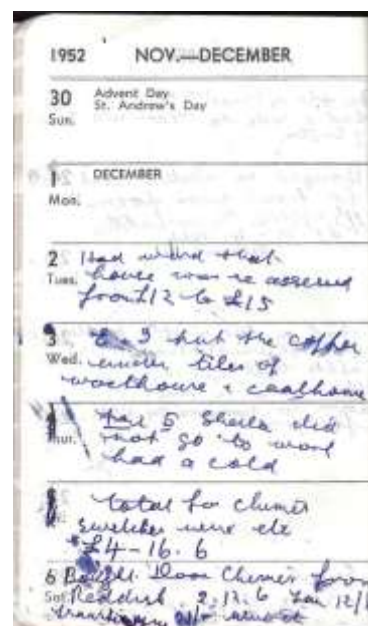 1952 NOV.—DECEMBER
30 Advent Day
St. Andrew's Day
Sun.
1 DECEMBER
Mon.
2 Had word that
Tues. house was re assessed
from £12 to £15
3 E & I put the copper
Wed. under tiles of
washhouse & coalhouse
4 Sheila did
Thur. not go to work
had a cold
5 total for chimes
switches wire etc
£4-16.6
6 Bought Door Chimes from
Sat. Reddish 2.12.6 12/
transformer 21/-